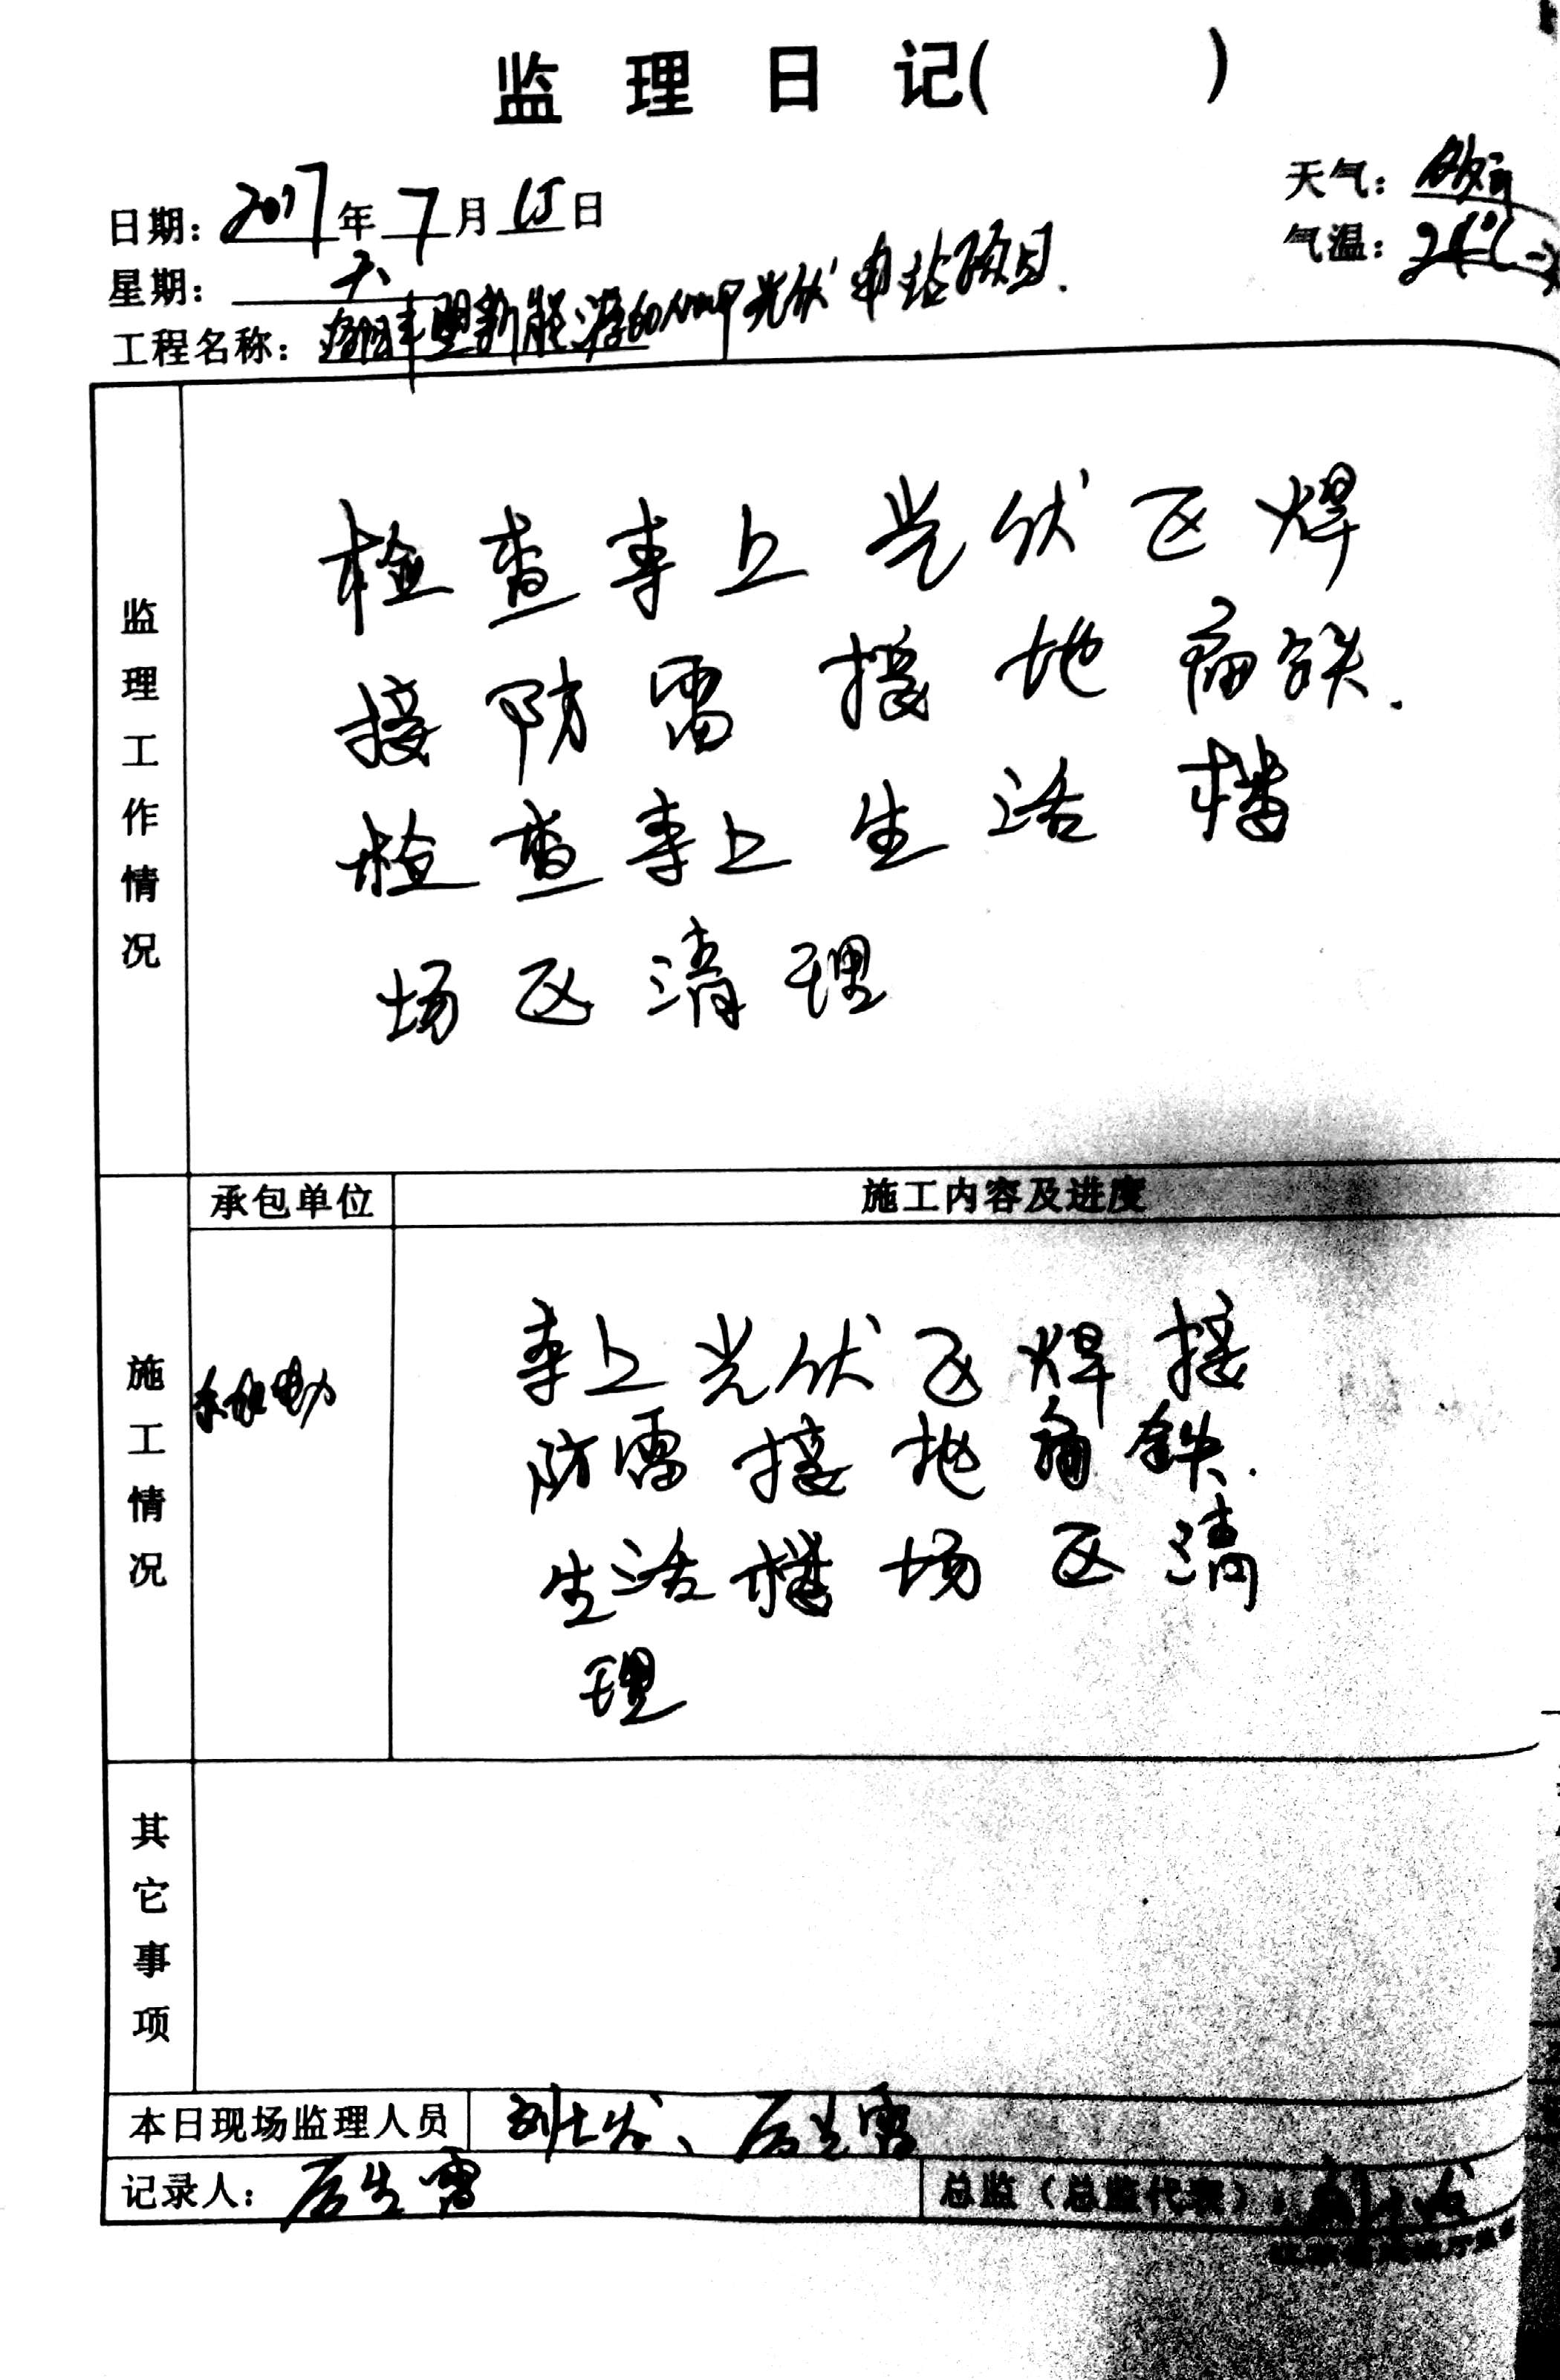 监理日记( )
日期：2017年7月15日
天气：
星期：六
气温：
工程名称：新能源60MWP光伏电站项目.
监理工作情况
检查李上光伏区焊
接防雷接地扁铁.
检查李上生活楼
场区清理
施工情况
承包单位
施工内容及进度
电力
李上光伏区焊接
防雷接地扁铁.
生活楼场区清
理
其它事项
本日现场监理人员
记录人：
总监（总监代表）：